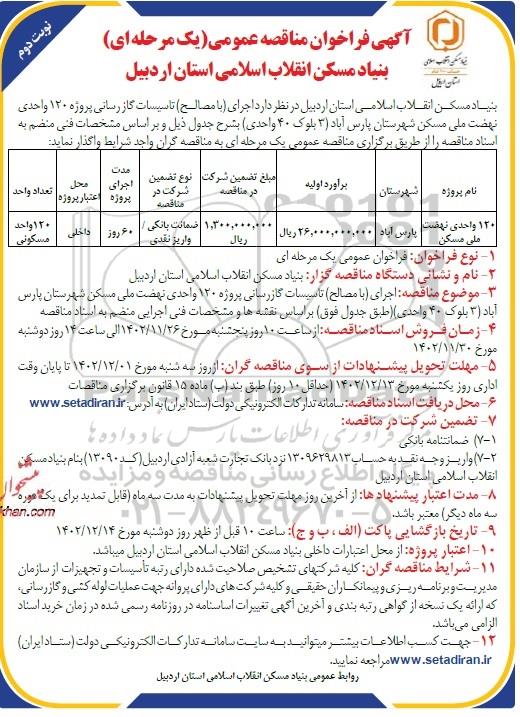 نوبت دوم
آگهی فراخوان مناقصه عمومی(یک مرحله ای)
بنیاد مسکن انقلاب اسلامی استان اردبیل
بنیاد مسکن انقلاب اسلامی
استان اردبیل
بنیـاد مسکـن انقـلاب اسلامـی استان اردبیل در نظر دارد اجرای (با مصالح) تاسیسات گاز رسانی پروژه ۱۲۰ واحدی
نهضت ملی مسکن شهرستان پارس آباد (۳ بلوک ۴۰ واحدی) بشرح جدول ذیل و بر اساس مشخصات فنی منضم به
اسناد مناقصه را از طریق برگزاری مناقصه عمومی یک مرحله ای به مناقصه گران واجد شرایط واگذار نماید:
نام پروژه | شهرستان | برآورد اولیه | مبلغ تضمین شرکت در مناقصه | نوع تضمین شرکت در مناقصه | مدت اجرای پروژه | محل اعتبار پروژه | تعداد واحد
۱۲۰ واحدی نهضت ملی مسکن | پارس آباد | ۲۶,۰۰۰,۰۰۰,۰۰۰ ریال | ۱,۳۰۰,۰۰۰,۰۰۰ ریال | ضمانت بانکی / واریز نقدی | ۶۰ روز | داخلی | ۱۲۰واحد مسکونی
۱- نوع فراخوان: فراخوان عمومی یک مرحله ای
۲- نام و نشانی دستگاه مناقصه گزار: بنیاد مسکن انقلاب اسلامی استان اردبیل
۳-موضوع مناقصه:اجرای (با مصالح) تاسیسات گازرسانی پروژه ۱۲۰ واحدی نهضت ملی مسکن شهرستان پارس
آباد (۳ بلوک ۴۰ واحدی)(طبق جدول فوق) براساس نقشه ها و مشخصات فنی اجرایی منضم به اسناد مناقصه
۴-زمـان فـروش اسـناد مناقصـه:از ساعت ۱۰روز پنجشنبه مـورخ ۱۴۰۲/۱۱/۲۶الی ساعت ۱۴ روز دوشنبه
مورخ ۱۴۰۲/۱۱/۳۰
۵- مهلت تحویل پیشـنهادات از سـوی مناقصه گران: ازروز سه شنبه مورخ ۱۴۰۲/۱۲/۰۱ تا پایان وقت
اداری روز یکشنبه مورخ ۱۴۰۲/۱۲/۱۳ (حداقل ۱۰ روز) طبق بند (ب) ماده ۱۵ قانون برگزاری مناقصات
۶- محل دریافت اسناد مناقصه: سامانه تدارکات الکترونیکی دولت(ستاد ایران) به آدرس: www.setadiran.ir
۷- تضمین شرکت در مناقصه:
۷-۱) ضمانتنامه بانکی
۷-۲)واریز وجه نقد به حساب ۱۳۰۹۶۲۹۸۱۳ نزد بانک تجارت شعبه آزادی اردبیل(کد ۱۳۰۹۰) بنام بنیاد مسکن
انقلاب اسلامی استان اردبیل
۸- مدت اعتبار پیشنهاد ها: از آخرین روز مهلت تحویل پیشنهادات به مدت سه ماه (قابل تمدید برای یک دوره
سه ماه دیگر) معتبر باشد.
۹- تاریخ بازگشایی پاکت (الف ، ب و ج): ساعت ۱۰ قبل از ظهر روز دوشنبه مورخ ۱۴۰۲/۱۲/۱۴
۱۰- اعتبار پروژه: از محل اعتبارات داخلی بنیاد مسکن انقلاب اسلامی استان اردبیل میباشد.
۱۱- شرایط مناقصه گران: کلیه شرکتهای تشخیص صلاحیت شده دارای رتبه تأسیسات و تجهیزات از سازمان
مدیریت و برنامه ریـزی و پیمانکـاران حقیقـی و کلیه شرکت های دارای پروانه جهت عملیات لوله کشی و گازرسانی،
که ارائه یک نسخه از گواهی رتبه بندی و آخرین آگهی تغییرات اساسنامه در روزنامه رسمی شده در زمان خرید اسناد
الزامی می‌باشد.
۱۲- جهـت کسـب اطلاعـات بیشتـر میتوانیـد بـه سایـت سامانـه تدارکات الکترونیکـی دولت (ستاد ایران)
www.setadiran.irمراجعه نمایید.
روابط عمومی بنیاد مسکن انقلاب اسلامی استان اردبیل
khan.com
۰۲۱-۸۸۳۴۹۶۷۰-۵